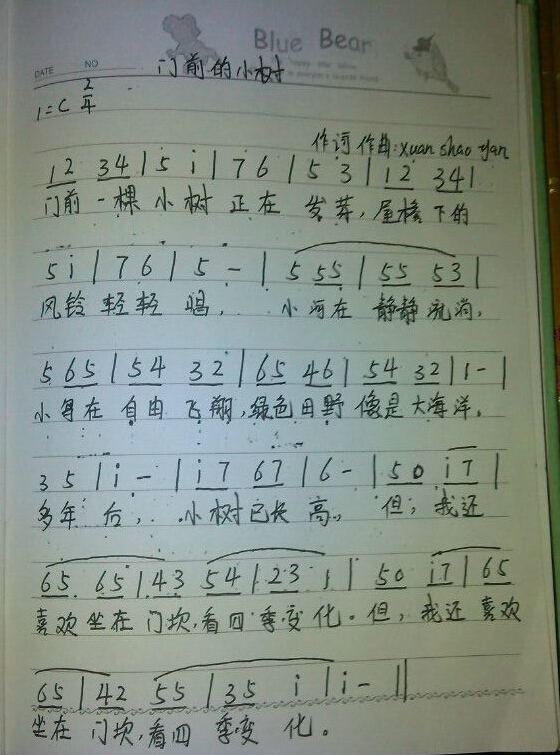 Blue Bear
DATE NO
门前的小树
1=C 2/4
作词 作曲:xuan shao yan
12 34 | 5 i | 7 6 | 5 3 | 12 34 |
门前一棵小树正在发芽,屋檐下的
5 i | 7 6 | 5 - | 5 55 | 55 53 |
风铃轻轻唱,小河在静静流淌,
5 65 | 54 32 | 65 46 | 54 32 | 1 - |
小鸟在自由飞翔,绿色田野像是大海洋。
3 5 | i - | i7 67 | 6 - | 50 i7 |
多年后,小树已长高。但,我还
65 65 | 43 54 | 23 1 | 50 i7 | 65
喜欢坐在门坎,看四季变化。但,我还喜欢
65 | 42 55 | 35 i | i - ||
坐在门坎,看四季变化。